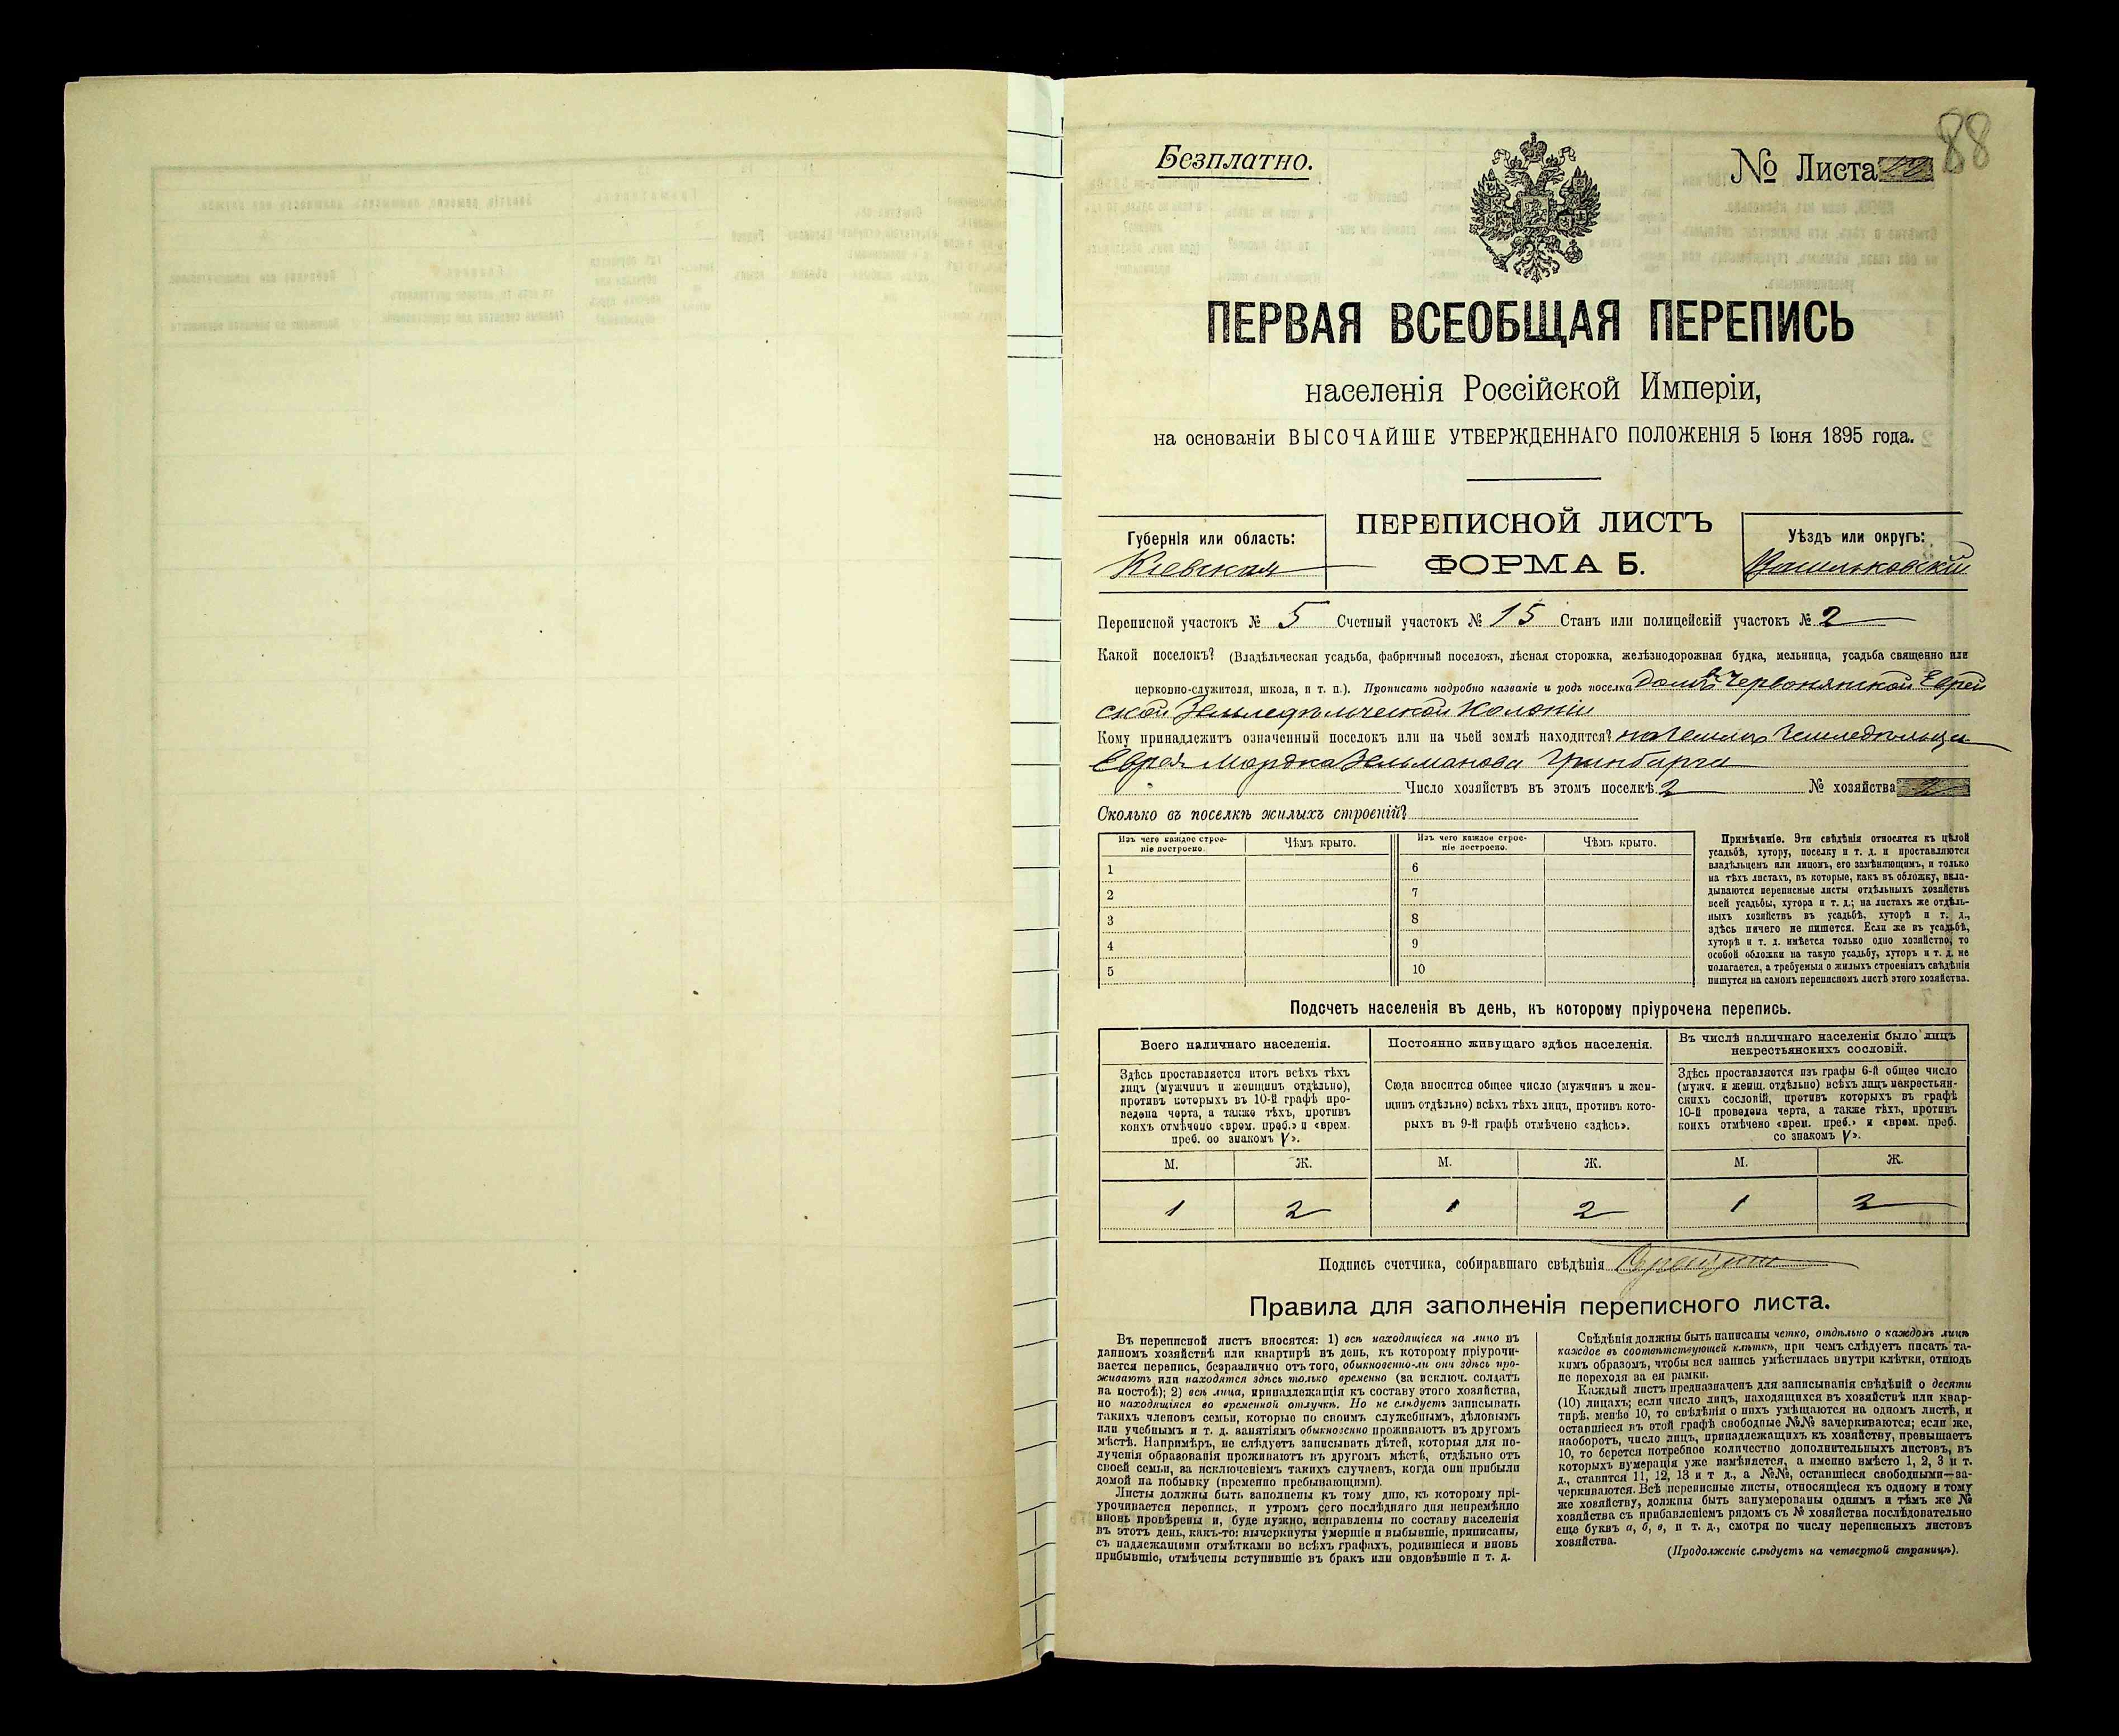 88
Безплатно.
№ Листа
ПЕРВАЯ ВСЕОБЩАЯ ПЕРЕПИСЬ
населенія Россійской Имперіи,
на основаніи ВЫСОЧАЙШЕ УТВЕРЖДЕННАГО ПОЛОЖЕНІЯ 5 Іюня 1895 года.
Губернія или область:
Кіевская
ПЕРЕПИСНОЙ ЛИСТЪ
ФОРМА Б.
Уѣздъ или округъ:
Васильковскій
Переписной участокъ № 5 Счетный участокъ № 15 Станъ или полицейскій участокъ № 2
Какой поселокъ? (Владѣльческая усадьба, фабричный поселокъ, лѣсная сторожка, желѣзнодорожная будка, мельница, усадьба священно или
церковно-служителя, школа, и т. п.). Прописать подробно названіе и родъ поселка домъ въ Червонянской Еврей
ской Земледѣльческой Колоніи
Кому принадлежитъ означенный поселокъ или на чьей землѣ находится? на землѣ земледѣльца
Еврея Мордка Зельманова Гринбарга
Число хозяйствъ въ этомъ поселкѣ 2 № хозяйства 2
Сколько въ поселкѣ жилыхъ строеній?
Изъ чего каждое строе-
ніе построено.
Чѣмъ крыто.
Изъ чего каждое строе-
ніе построено.
Чѣмъ крыто.
1 6
2 7
3 8
4 9
5 10
Примѣчаніе. Эти свѣдѣнія относятся къ цѣлой
усадьбѣ, хутору, поселку и т. д. и проставляются
владѣльцемъ или лицомъ, его замѣняющимъ, и только
на тѣхъ листахъ, въ которые, какъ въ обложку, вкла-
дываются переписные листы отдѣльныхъ хозяйствъ
всей усадьбы, хутора и т. д.; на листахъ же отдѣль-
ныхъ хозяйствъ въ усадьбѣ, хуторѣ и т. д.,
здѣсь ничего не пишется. Если же въ усадьбѣ,
хуторѣ и т. д. имѣется только одно хозяйство, то
особой обложки на такую усадьбу, хуторъ и т. д. не
полагается, а требуемыя о жилыхъ строеніяхъ свѣдѣнія
пишутся на самомъ переписномъ листѣ этого хозяйства.
Подсчетъ населенія въ день, къ которому пріурочена перепись.
Всего наличнаго населенія.
Здѣсь проставляется итогъ всѣхъ тѣхъ
лицъ (мужчинъ и женщинъ отдѣльно),
противъ которыхъ въ 10-й графѣ про-
ведена черта, а также тѣхъ, противъ
коихъ отмѣчено «врем. преб.» и «врем.
преб. со знакомъ V».
Постоянно живущаго здѣсь населенія.
Сюда вносится общее число (мужчинъ и жен-
щинъ отдѣльно) всѣхъ тѣхъ лицъ, противъ кото-
рыхъ въ 9-й графѣ отмѣчено «здѣсь».
Въ числѣ наличнаго населенія было лицъ
некрестьянскихъ сословій.
Здѣсь проставляется изъ графы 6-й общее число
(мужч. и женщ. отдѣльно) всѣхъ лицъ некрестьян-
скихъ сословій, противъ которыхъ въ графѣ
10-й проведена черта, а также тѣхъ, противъ
коихъ отмѣчено «врем. преб.» и «врем. преб.
со знакомъ V».
М. Ж. М. Ж. М. Ж.
1 2 1 2 1 2
Подпись счетчика, собиравшаго свѣдѣнія
Правила для заполненія переписного листа.
Въ переписной листъ вносятся: 1) всѣ находящіеся на лицо въ
данномъ хозяйствѣ или квартирѣ въ день, къ которому пріурочи-
вается перепись, безразлично отъ того, обыкновенно-ли они здѣсь про-
живаютъ или находятся здѣсь только временно (за исключ. солдатъ
на постоѣ); 2) всѣ лица, принадлежащія къ составу этого хозяйства,
но находящіяся во временной отлучкѣ. Но не слѣдуетъ записывать
такихъ членовъ семьи, которые по своимъ служебнымъ, дѣловымъ
или учебнымъ и т. д. занятіямъ обыкновенно проживаютъ въ другомъ
мѣстѣ. Напримѣръ, не слѣдуетъ записывать дѣтей, которыя для по-
лученія образованія проживаютъ въ другомъ мѣстѣ, отдѣльно отъ
своей семьи, за исключеніемъ такихъ случаевъ, когда они прибыли
домой на побывку (временно пребывающими).
Листы должны быть заполнены къ тому дню, къ которому прі-
урочивается перепись, и утромъ сего послѣдняго дня непремѣнно
вновь провѣрены и, буде нужно, исправлены по составу населенія
въ этотъ день, какъ-то: вычеркнуты умершіе и выбывшіе, приписаны,
съ надлежащими отмѣтками во всѣхъ графахъ, родившіеся и вновь
прибывшіе, отмѣчены вступившіе въ бракъ или овдовѣвшіе и т. д.
Свѣдѣнія должны быть написаны четко, отдѣльно о каждомъ лицѣ
каждое въ соотвѣтствующей клѣткѣ, при чемъ слѣдуетъ писать та-
кимъ образомъ, чтобы вся запись умѣстилась внутри клѣтки, отнюдь
не переходя за ея рамки.
Каждый листъ предназначенъ для записыванія свѣдѣній о десяти
(10) лицахъ; если число лицъ, находящихся въ хозяйствѣ или квар-
тирѣ, менѣе 10, то свѣдѣнія о нихъ умѣщаются на одномъ листѣ, и
оставшіеся въ этой графѣ свободные №№ зачеркиваются; если же,
наоборотъ, число лицъ, принадлежащихъ къ хозяйству, превышаетъ
10, то берется потребное количество дополнительныхъ листовъ, въ
которыхъ нумерація уже измѣняется, а именно вмѣсто 1, 2, 3 и т.
д., ставится 11, 12, 13 и т д., а №№, оставшіеся свободными—за-
черкиваются. Всѣ переписные листы, относящіеся къ одному и тому
же хозяйству, должны быть занумерованы однимъ и тѣмъ же №
хозяйства съ прибавленіемъ рядомъ съ № хозяйства послѣдовательно
еще буквъ а, б, в, и т. д., смотря по числу переписныхъ листовъ
хозяйства.
(Продолженіе слѣдуетъ на четвертой страницѣ).